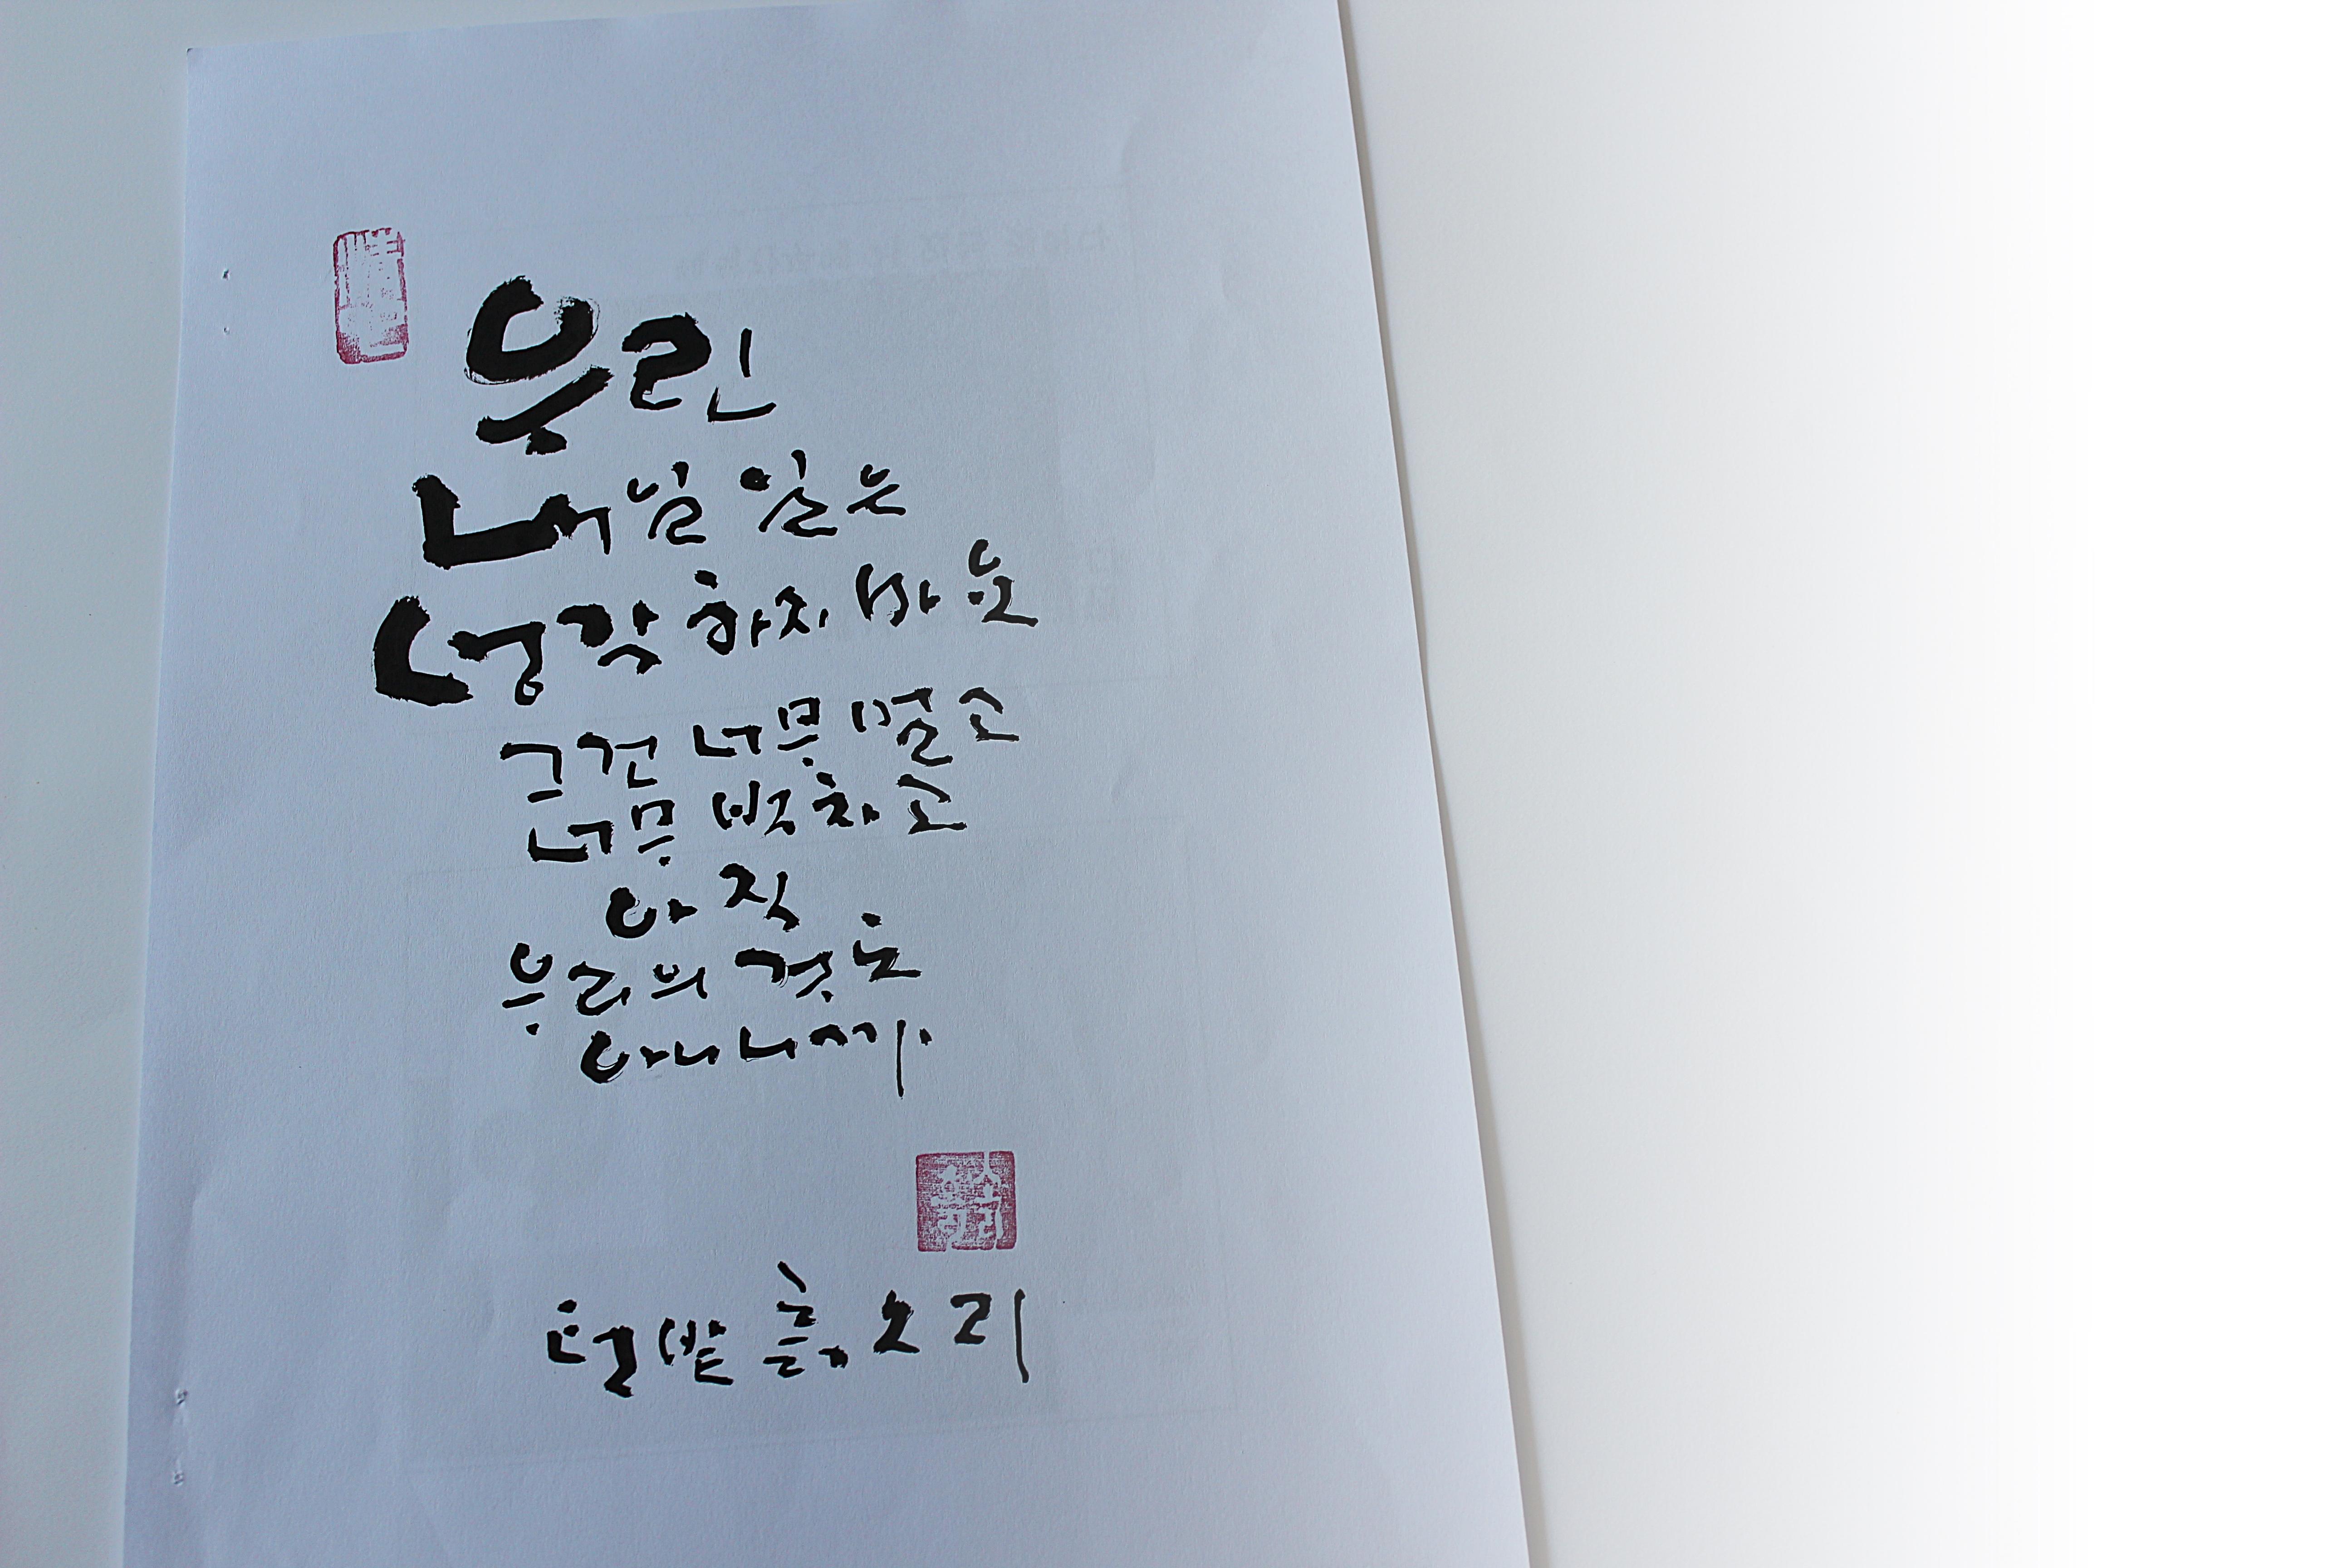 우린
내일 일은
생각하지 마요
그건 너무 멀고
너무 벅차고
아직
우리의 것도
아니니까.
텃밭 흙소리